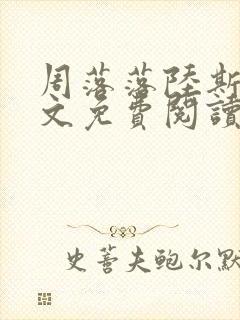 周落落陸斯
文免費閱讀
史蒂夫鲍尔默